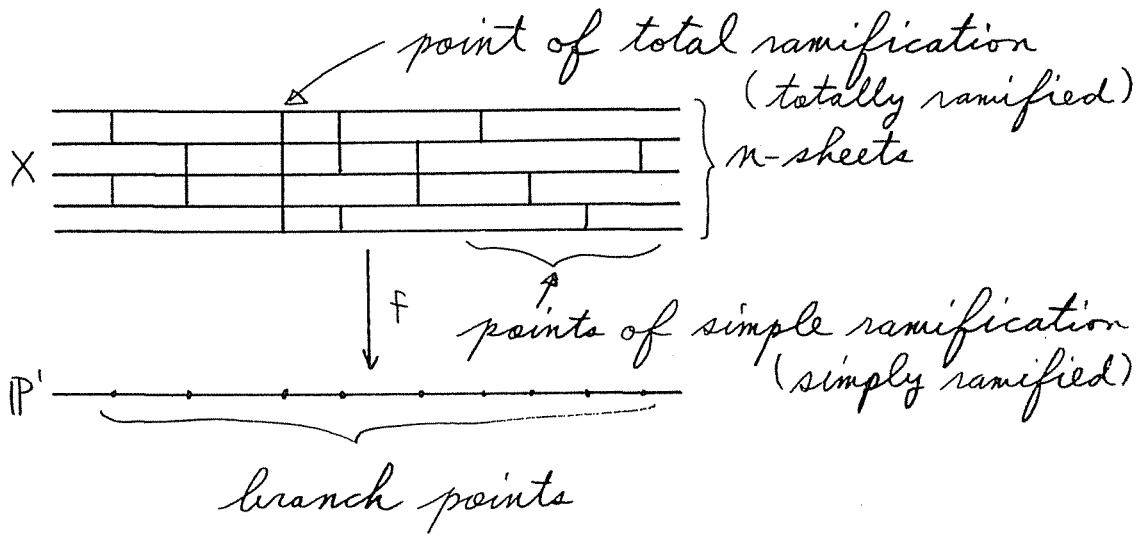 point of total ramification
(totally ramified)
X
n-sheets
f
points of simple ramification
(simply ramified)
ℙ¹
branch points